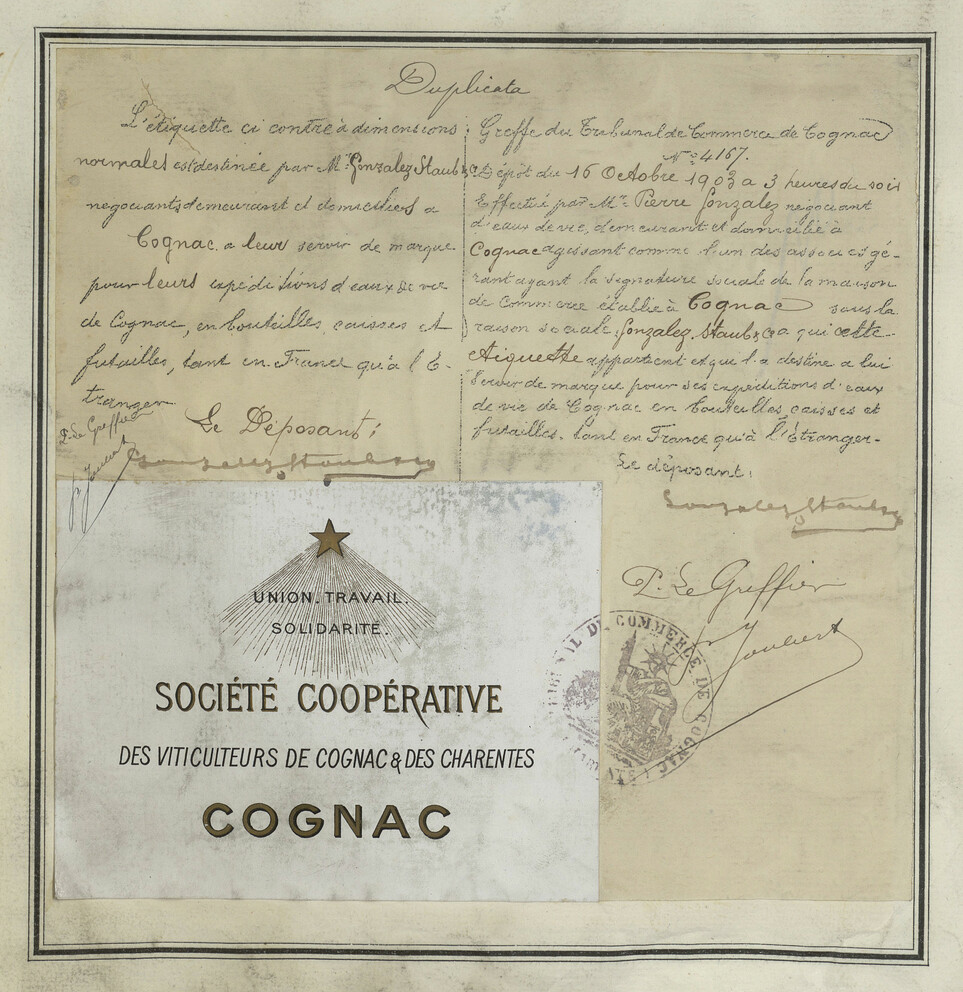 Duplicata
L'étiquette ci contre à dimensions
normales est destinée par Mrs Gonzalez Staub & Co
négociants demeurant et domiciliés à
Cognac, à leur servir de marque
pour leurs expéditions d'eaux de vie
de Cognac, en bouteilles, caisses et
futailles, tant en France qu'à l'É-
tranger
Le Déposant:
Gonzalez Staub & Co
P. Le Greffier
Joubert
Greffe du Tribunal de Commerce de Cognac
No 4167.
Dépôt du 16 Octobre 1903 à 3 heures du soir
Effectué par Mr Pierre Gonzalez négociant
d'eaux de vie, demeurant et domicilié à
Cognac agissant comme l'un des associés gé-
rant ayant la signature sociale de la maison
de Commerce établie à Cognac sous la
raison sociale, Gonzalez, Staub & Co à qui cette
étiquette appartient et qui l'a destine à lui
servir de marque pour ses expéditions d'eaux
de vie de Cognac en bouteilles caisses et
futailles, tant en France qu'à l'Étranger-
Le déposant:
Gonzalez Staub & Co
P. Le Greffier
Joubert
TRIBUNAL DE COMMERCE DE COGNAC
UNION. TRAVAIL.
SOLIDARITÉ.
SOCIÉTÉ COOPÉRATIVE
DES VITICULTEURS DE COGNAC & DES CHARENTES
COGNAC